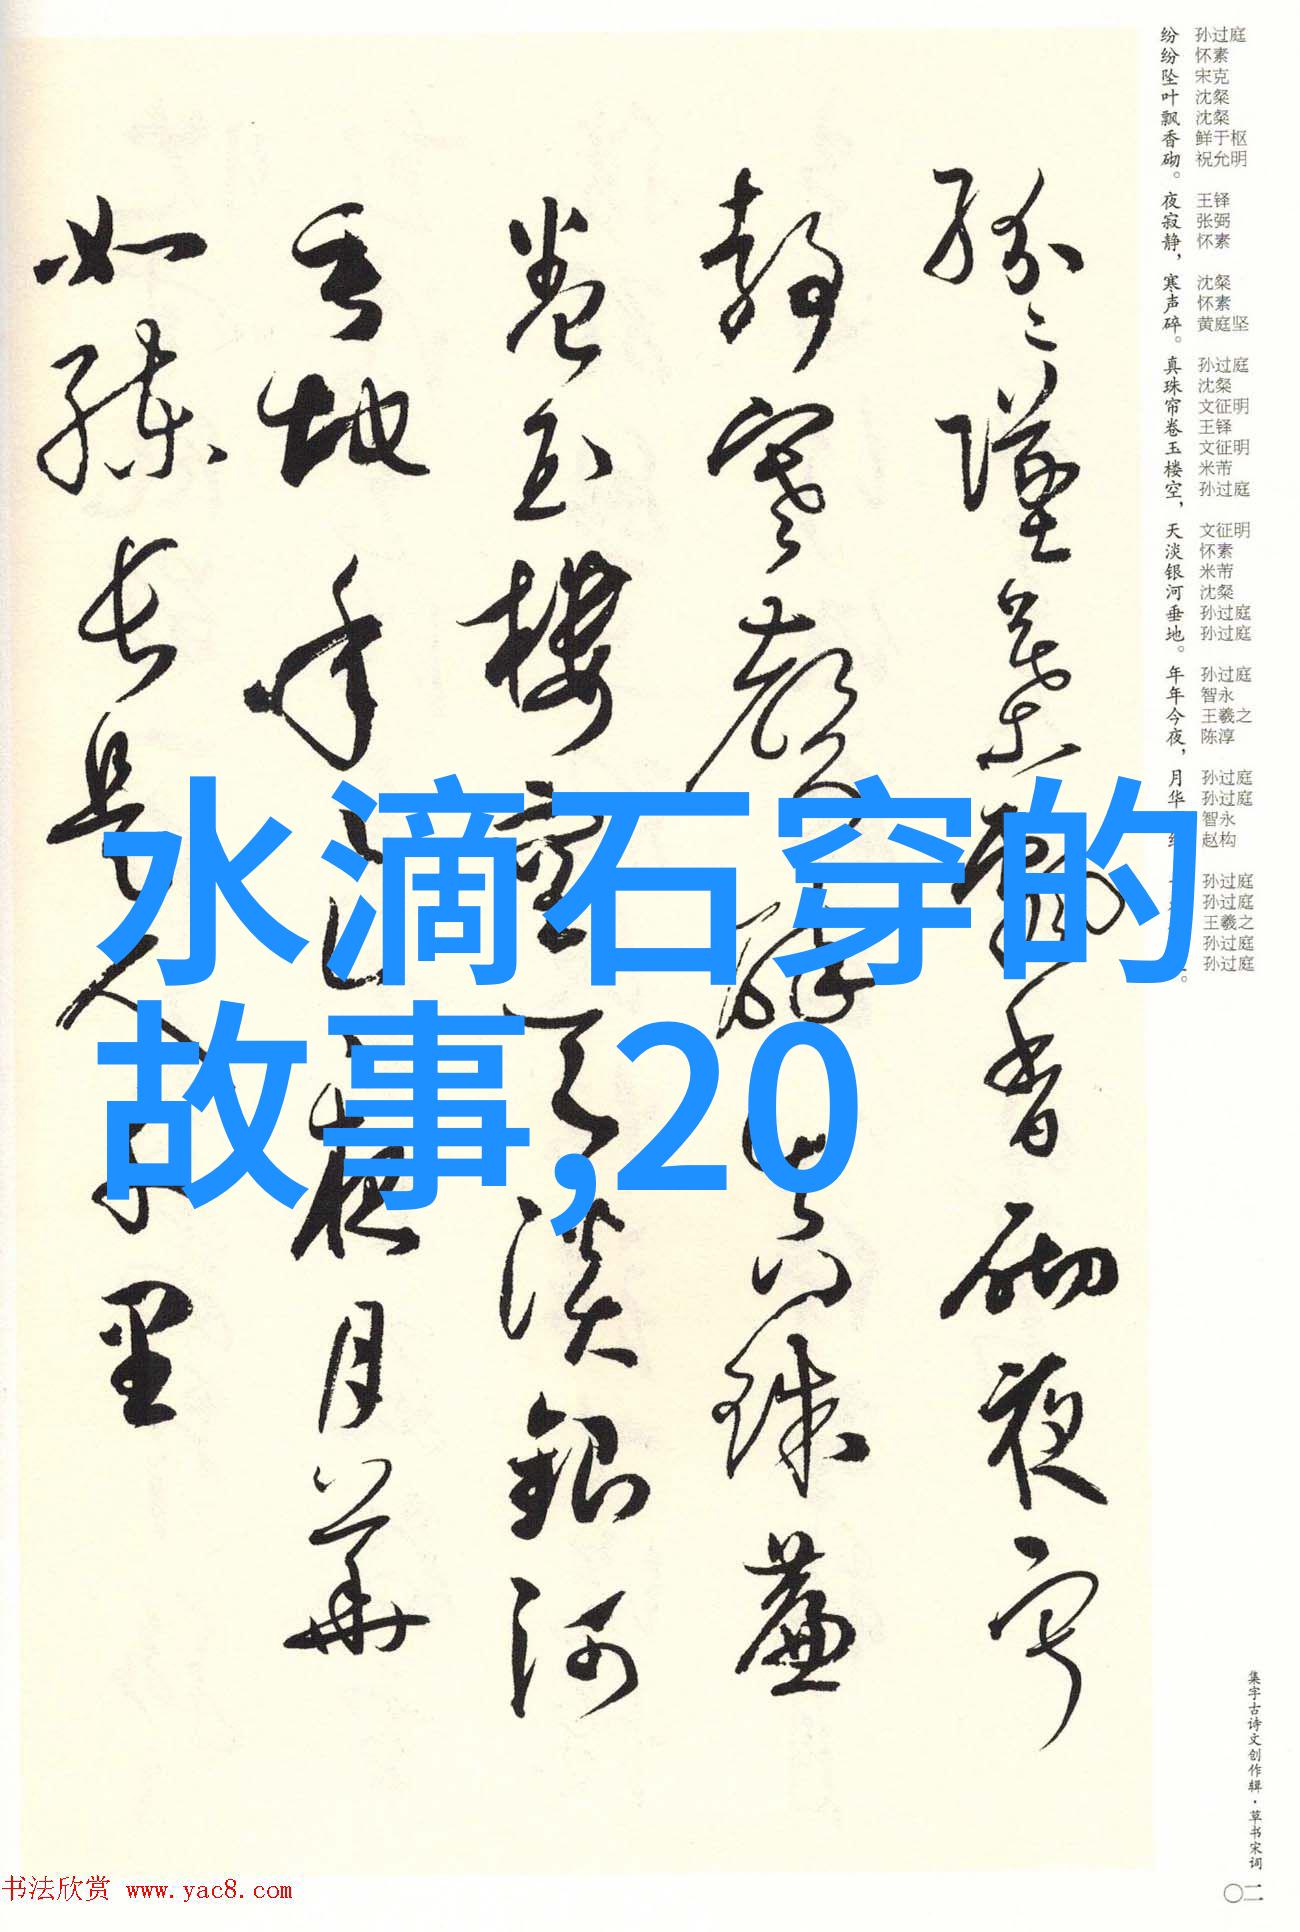 孙过庭 怀素 宋克 沈粲 沈粲 鲜于枢 祝允明 王铎 张弼 怀素 沈粲 怀素 黄庭坚 孙过庭 沈粲 文征明 王铎 文征明 米芾 孙过庭 文征明 怀素 米芾 沈粲 孙过庭 孙过庭 孙过庭 智永 王羲之 陈淳 孙过庭 孙过庭 智永 赵构 孙过庭 孙过庭 王羲之 孙过庭 孙过庭
纷纷坠叶飘香砌。夜寂静，寒声碎。真珠帘卷玉楼空，天淡银河垂地。年年今夜，月华
紛々墜葉飄香砌夜寂
靜寒聲碎真珠簾
卷玉樓空天淡銀河
垂地年々今夜月華
如練長是人千里
水滴石穿的
故事,20
集字古诗文创作辑·草书宋词
〇二
书法欣赏 www.yac8.com